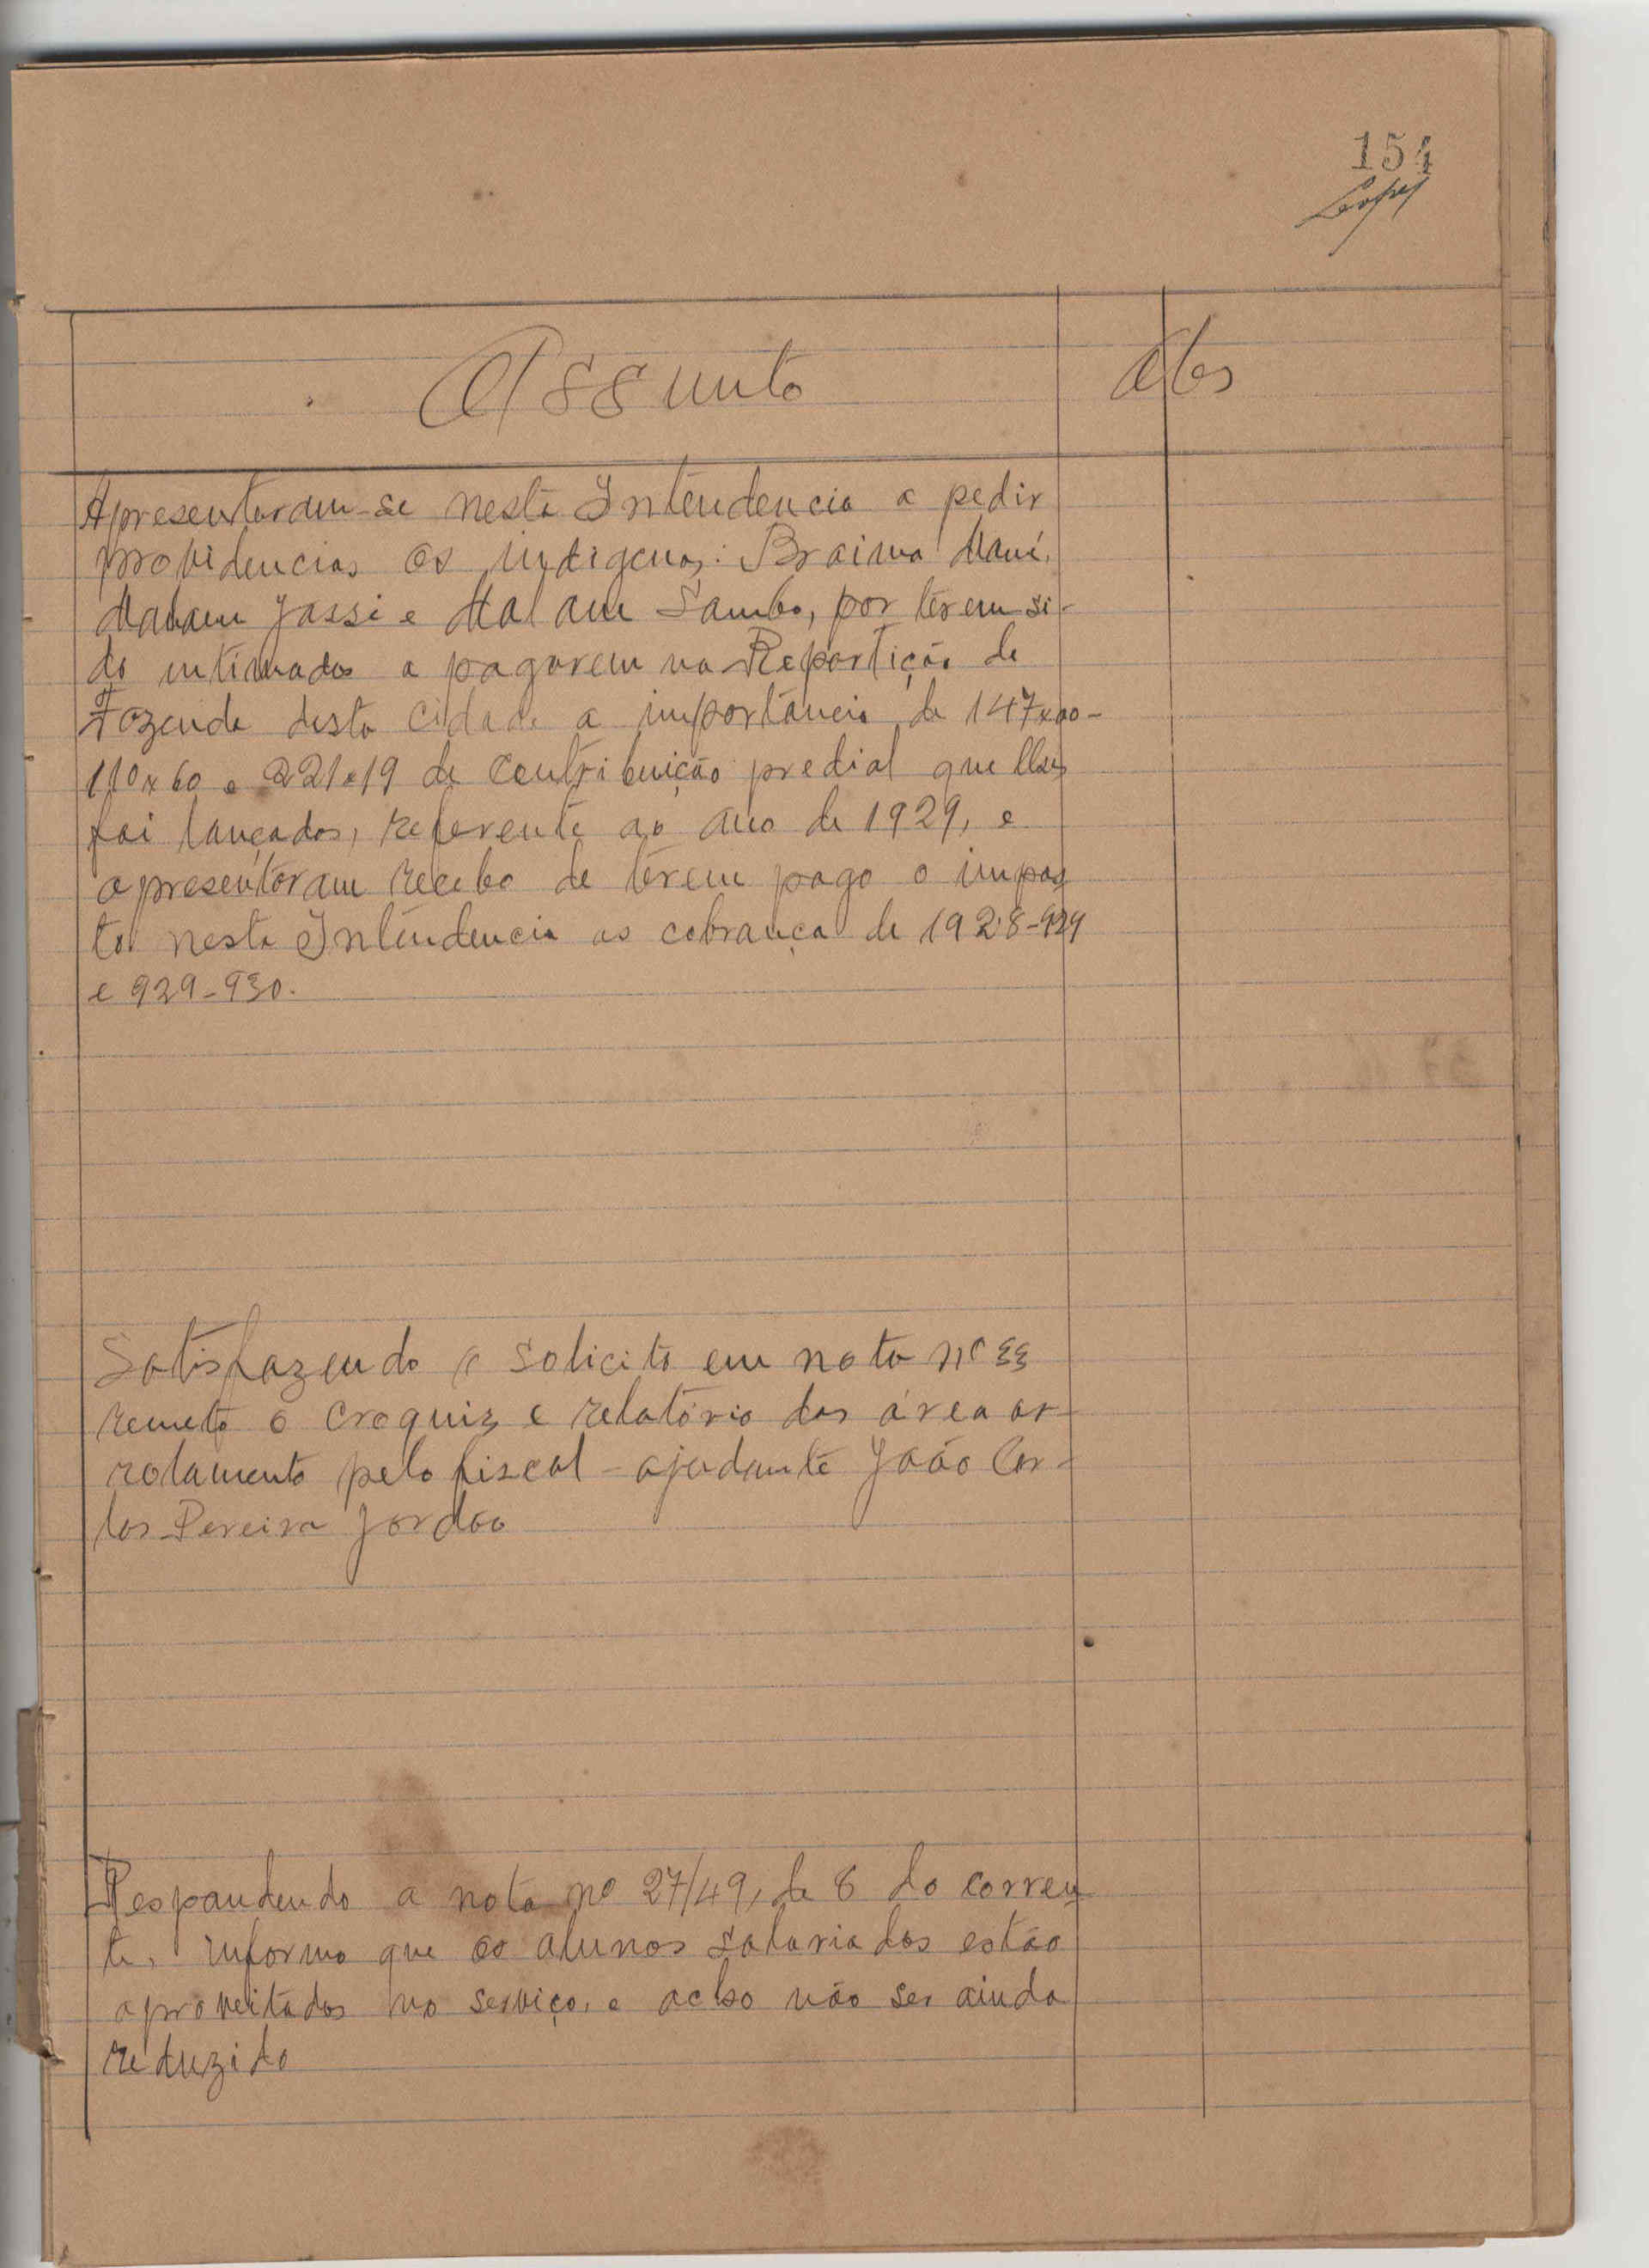 154
Lopes
Assunto
Obs
Apresentaram-se nesta Intendencia a pedir
providencias os indigenas: Braima Mané,
Malam Jassi e Malam Sambo, por terem si-
do intimados a pagarem na Repartição de
Fazenda desta cidade a importáncia de 147x00-
110x60 e 221x19 de Contribuição predial que lhes
foi lançados, referente ao ano de 1929, e
apresentaram recebo de terem pago o impos
to nesta Intendencia as cobrança de 1928-929
e 929-930.
Satisfazendo o solicito em nota nº 33
remeto o croquiz e relatório das área ar-
rolamento pelo fiscal-ajudante João Car-
los Pereira Jordão
Respondendo a nota nº 27/49, de 8 do corren
te, informo que os alunos salariados estão
aproveitados no serviço, e acho não ser ainda
reduzido